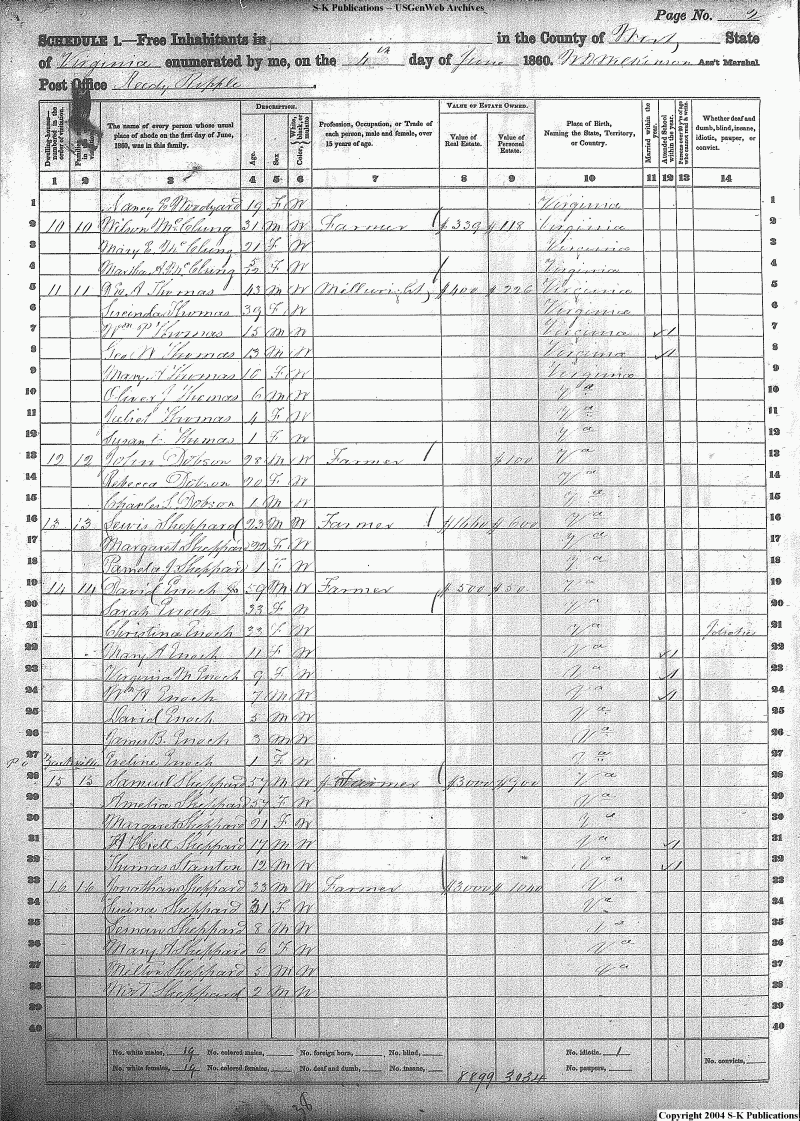 S-K Publications – USGenWeb Archives
Page No. 2
SCHEDULE 1.—Free Inhabitants in in the County of Wirt, State
of Virginia enumerated by me, on the 4th day of June 1860. Ass't Marshal
Post Office Reedy Ripple.
Dwelling-houses numbered in the order of visitation.
The name of every person whose usual place of abode on the first day of June, 1860, was in this family.
DESCRIPTION.
Age. Sex. Color, White, black, or mulatto.
Profession, Occupation, or Trade of each person, male and female, over 15 years of age.
VALUE OF ESTATE OWNED.
Value of Real Estate. Value of Personal Estate.
Place of Birth, Naming the State, Territory, or Country.
Married within the year. Attended School within the year.
Whether deaf and dumb, blind, insane, idiotic, pauper, or convict.
1 2 3 4 5 6 7 8 9 10 11 12 13 14
1 Woodyard 19 F W Virginia 1
2 10 10 Wilson McClung 31 M W Farmer $339 $118 Virginia 2
3 Mary E McClung 21 F W Virginia 3
4 Martha A McClung 5/12 F W Virginia 4
5 11 11 A Thomas 43 M W Millwright $400 $226 Virginia 5
6 Lucinda Thomas 39 F W Virginia 6
7 Wm P Thomas 15 M W Virginia 1 7
8 Geo W Thomas 13 M W Virginia 1 8
9 Mary A Thomas 10 F W Virginia 9
10 Oliver J Thomas 6 M W Va 10
11 Juliet Thomas 4 F W Va 11
12 Susan C Thomas 1 F W Va 12
13 12 12 John Dobson 28 M W Farmer $100 Va 13
14 Rebecca Dobson 20 F W Va 14
15 Charles L Dobson 1 M W Va 15
16 13 13 Lewis Sheppard 23 M W Farmer $600 Va 16
17 Margaret Sheppard 22 F W Va 17
18 Pamela J Sheppard 1 F W Va 18
19 14 14 David Enoch 59 M W Farmer $500 $50 Va 19
20 Sarah Enoch 33 F W Va 20
21 Christina Enoch 33 F W Va 21
22 Mary A Enoch 11 F W Va 1 22
23 Virginia M Enoch 9 F W Va 1 23
24 Wm H Enoch 7 M W Va 1 24
25 David Enoch 5 M W Va 25
26 James B. Enoch 3 M W Va 26
27 Eveline Enoch 1 F W Va 27
28 15 15 Samuel Sheppard 57 M W Farmer $3000 $900 Va 28
29 Amelia Sheppard 57 F W Va 29
30 Margaret Sheppard 21 F W Va 30
31 Sheppard 17 M W Va 1 31
32 Thomas Stanton 12 M W Va 1 32
33 16 16 Jonathan Sheppard 33 M W Farmer $3000 $1040 Va 33
34 Lucina Sheppard 31 F W Va 34
35 Leman Sheppard 8 M W Va 35
36 Mary A Sheppard 6 F W Va 36
37 Melton Sheppard 5 M W Va 37
38 Sheppard 2 M W 38
39 39
40 40
No. white males, 19 No. colored males, No. foreign born, No. blind, No. idiotic, 1 No. convicts,
No. white females, 19 No. colored females, No. deaf and dumb, No. insane, 8899 3034 No. paupers,
38
Copyright 2004 S-K Publications